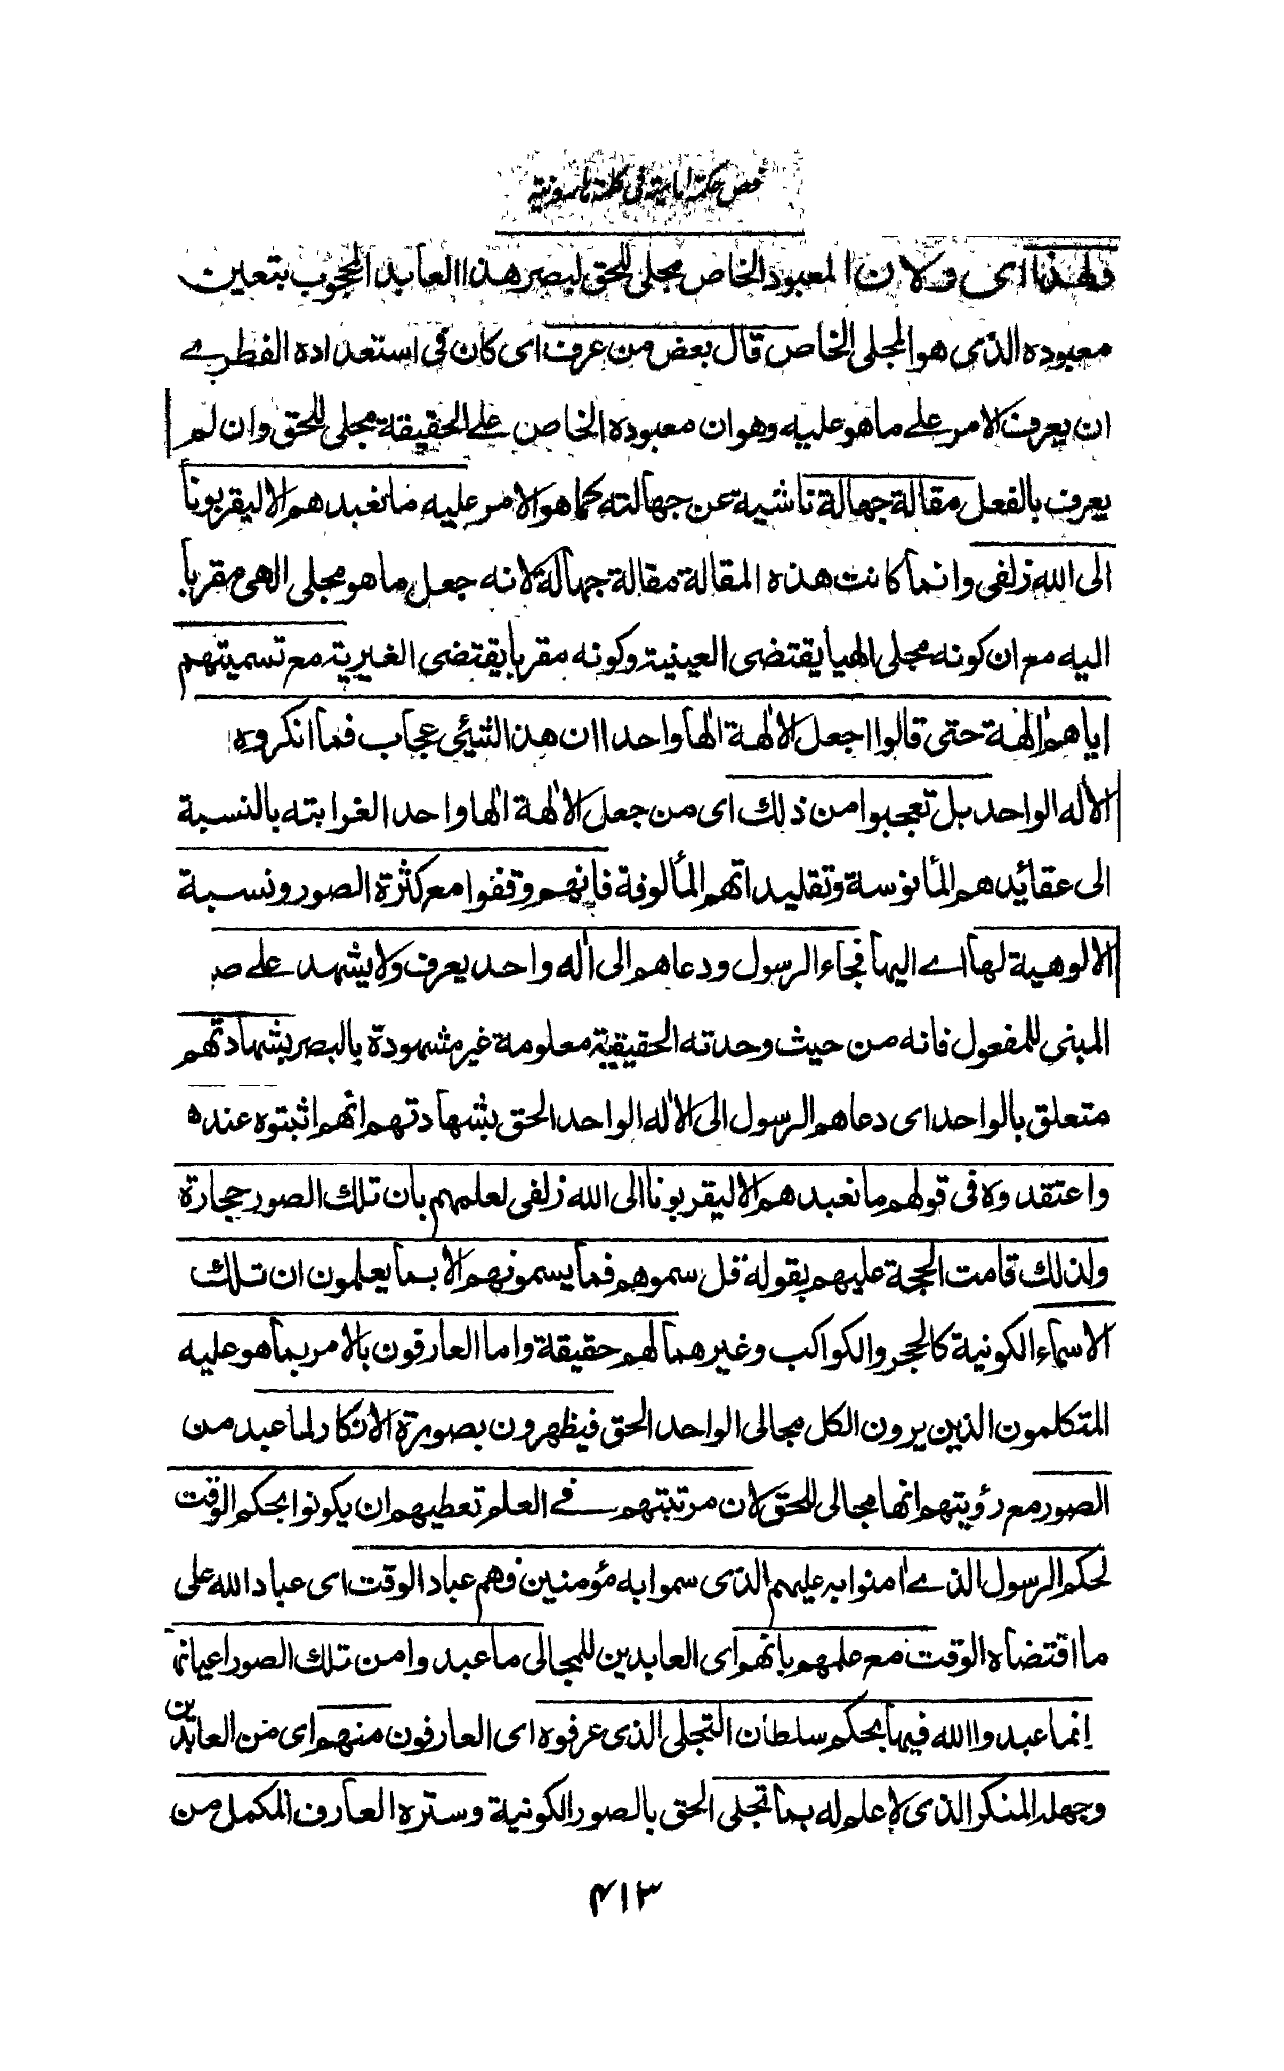 فص حكمة امامية في كلمة هارونية
ولهذا اى ولان المعبود الخاص مجلى للحق لبصر هذا العابد المحجوب بتعين
معبوده الذى هو المجلى الخاص قال بعض من عرف اى كان فى استعداده الفطرے
ان يعرف الامر علے ما هو عليه وهو ان معبوده الخاص علے الحقيقة مجلى للحق وان لم
يعرف بالفعل مقالة جهالة ناشية عن جهالته كما هو الامر عليه ما نعبدهم الا ليقربونا
الى الله زلفى وانما كانت هذه المقالة مقالة جهالة لانه جعل ما هو مجلى الهى مقربا
اليه مع ان كونه مجلى الهيا يقتضى العينية وكونه مقربا يقتضى الغيرية مع تسميتهم
اياهم الهة حتى قالوا اجعل الالهة الها واحدا ان هذا لشيئ عجاب فما انكروه
الاله الواحد بل تعجبوا من ذلك اى من جعل الالهة الها واحدا لغرابته بالنسبة
الى عقائدهم المأنوسة وتقليداتهم المألوفة فانهم وقفوا مع كثرة الصور ونسبة
الالوهية لها اے اليها فجاء الرسول ودعاهم الى اله واحد يعرف ولا يشهد علے صـ
المبنى للمفعول فانه من حيث وحدته الحقيقية معلومة غير مشهودة بالبصر بشهادتهم
متعلق بالواحد اى دعاهم الرسول الى الاله الواحد الحق بشهادتهم انهم اثبتوه عنده
واعتقدوه فى قولهم ما نعبدهم الا ليقربونا الى الله زلفى لعلمهم بان تلك الصور حجارة
ولذلك قامت الحجة عليهم بقوله قل سموهم فما يسمونهم الا بما يعلمون ان تلك
الاسماء الكونية كالحجر والكواكب وغيرهما لهم حقيقة واما العارفون بالامر بما هو عليه
المتكلمون الذين يرون الكل مجالى الواحد الحق فيظهرون بصورة الانكار لما عبد من
الصور مع رؤيتهم انها مجالى للحق لان مرتبتهم فے العلم تعطيهم ان يكونوا بحكم الوقت
لحكم الرسول الذے امنوا به عليهم الذى سموا به مؤمنين فهم عباد الوقت اى عباد الله على
ما اقتضاه الوقت مع علمهم بانهم اى العابدين للمجالى ما عبدوا من تلك الصور اعيانها
انما عبدوا الله فيها بحكم سلطان التجلى الذى عرفوه اى العارفون منهم اى من العابدين
وجهله المنكر الذى لا علم له بما تجلى الحق بالصور الكونية وستره العارف المكمل من
۴۱۳